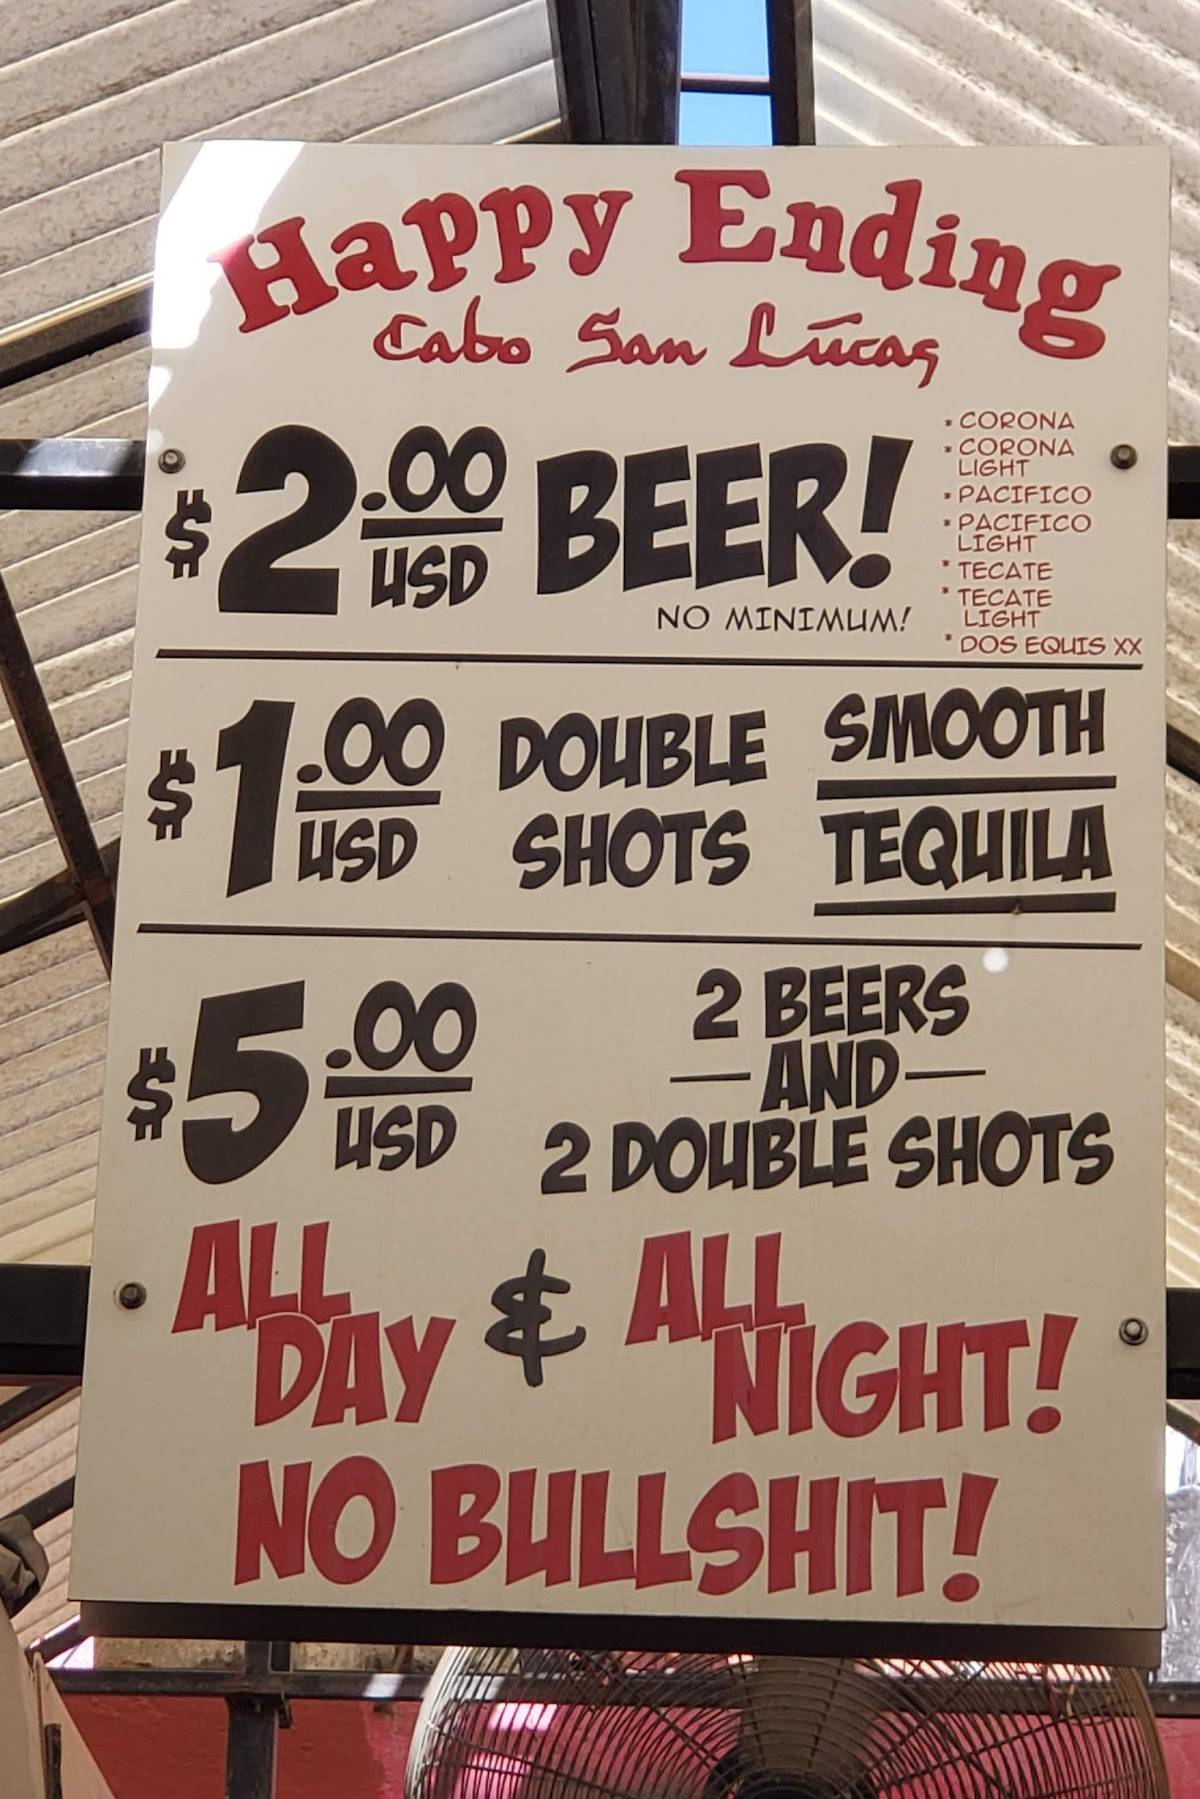 Happy Ending
Cabo San Lucas
$2.00 USD BEER!
NO MINIMUM!
* CORONA
* CORONA
LIGHT
* PACIFICO
* PACIFICO
LIGHT
* TECATE
* TECATE
LIGHT
* DOS EQUIS XX
$1.00 USD
DOUBLE
SHOTS
SMOOTH
TEQUILA
$5.00 USD
2 BEERS
AND
2 DOUBLE SHOTS
ALL
DAY
&
ALL
NIGHT!
NO BULLSHIT!